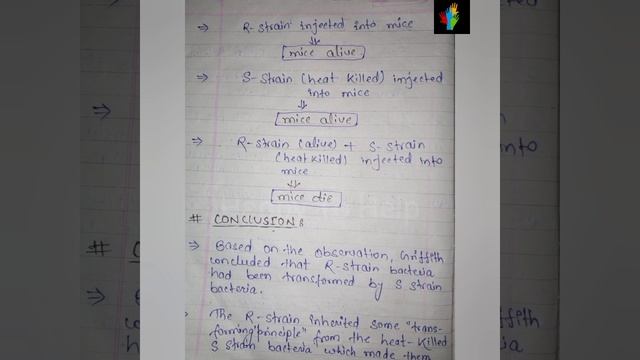 ⇒ R-strain injected into mice
⇓
mice alive
⇒ S-strain (heat killed) injected
into mice
⇓
mice alive
⇒ R-strain (alive) + S-strain
(heat killed) injected into
mice
⇓
mice die
# CONCLUSION :
⇒ Based on the observation, Griffith
concluded that R-strain bacteria
had been transformed by S strain
bacteria.
The R-strain inherited some "trans-
forming principle" from the heat-killed
S strain bacteria which made them